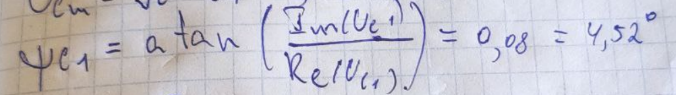 Ucm
ψc1 = atan (Im(Uc1) / Re(Uc1)) = 0,08 = 4,52°